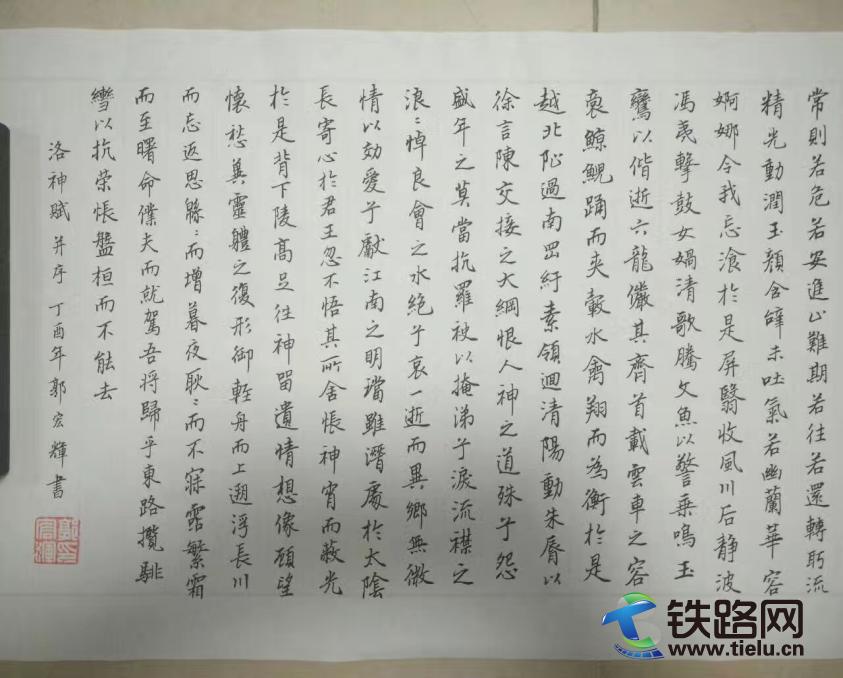 常則若危若安進止難期若往若還轉眄流
精光動潤玉顏含辭未吐氣若幽蘭華容
婀娜令我忘飡於是屏翳收風川后静波
馮夷擊鼓女媧清歌騰文魚以警乗鳴玉
鸞以偕逝六龍儼其齊首載雲車之容
裔鯨鯢踊而夾轂水禽翔而為衛於是
越北沚過南岡紆素領迴清陽動朱脣以
徐言陳交接之大綱恨人神之道殊兮怨
盛年之莫當抗羅袂以掩涕兮淚流襟之
浪〻悼良會之永絕兮哀一逝而異鄉無微
情以効愛兮獻江南之明璫雖潛處於太陰
長寄心於君王忽不悟其所舍悵神宵而蔽光
於是背下陵高足往神留遺情想像顧望
懷愁冀靈體之復形御輕舟而上遡浮長川
而忘返思緜〻而增慕夜耿〻而不寐霑繁霜
而至曙命僕夫而就駕吾將歸乎東路攬騑
轡以抗策悵盤桓而不能去
洛神賦 并序 丁酉年郭宏輝書
铁路网
www.tielu.cn